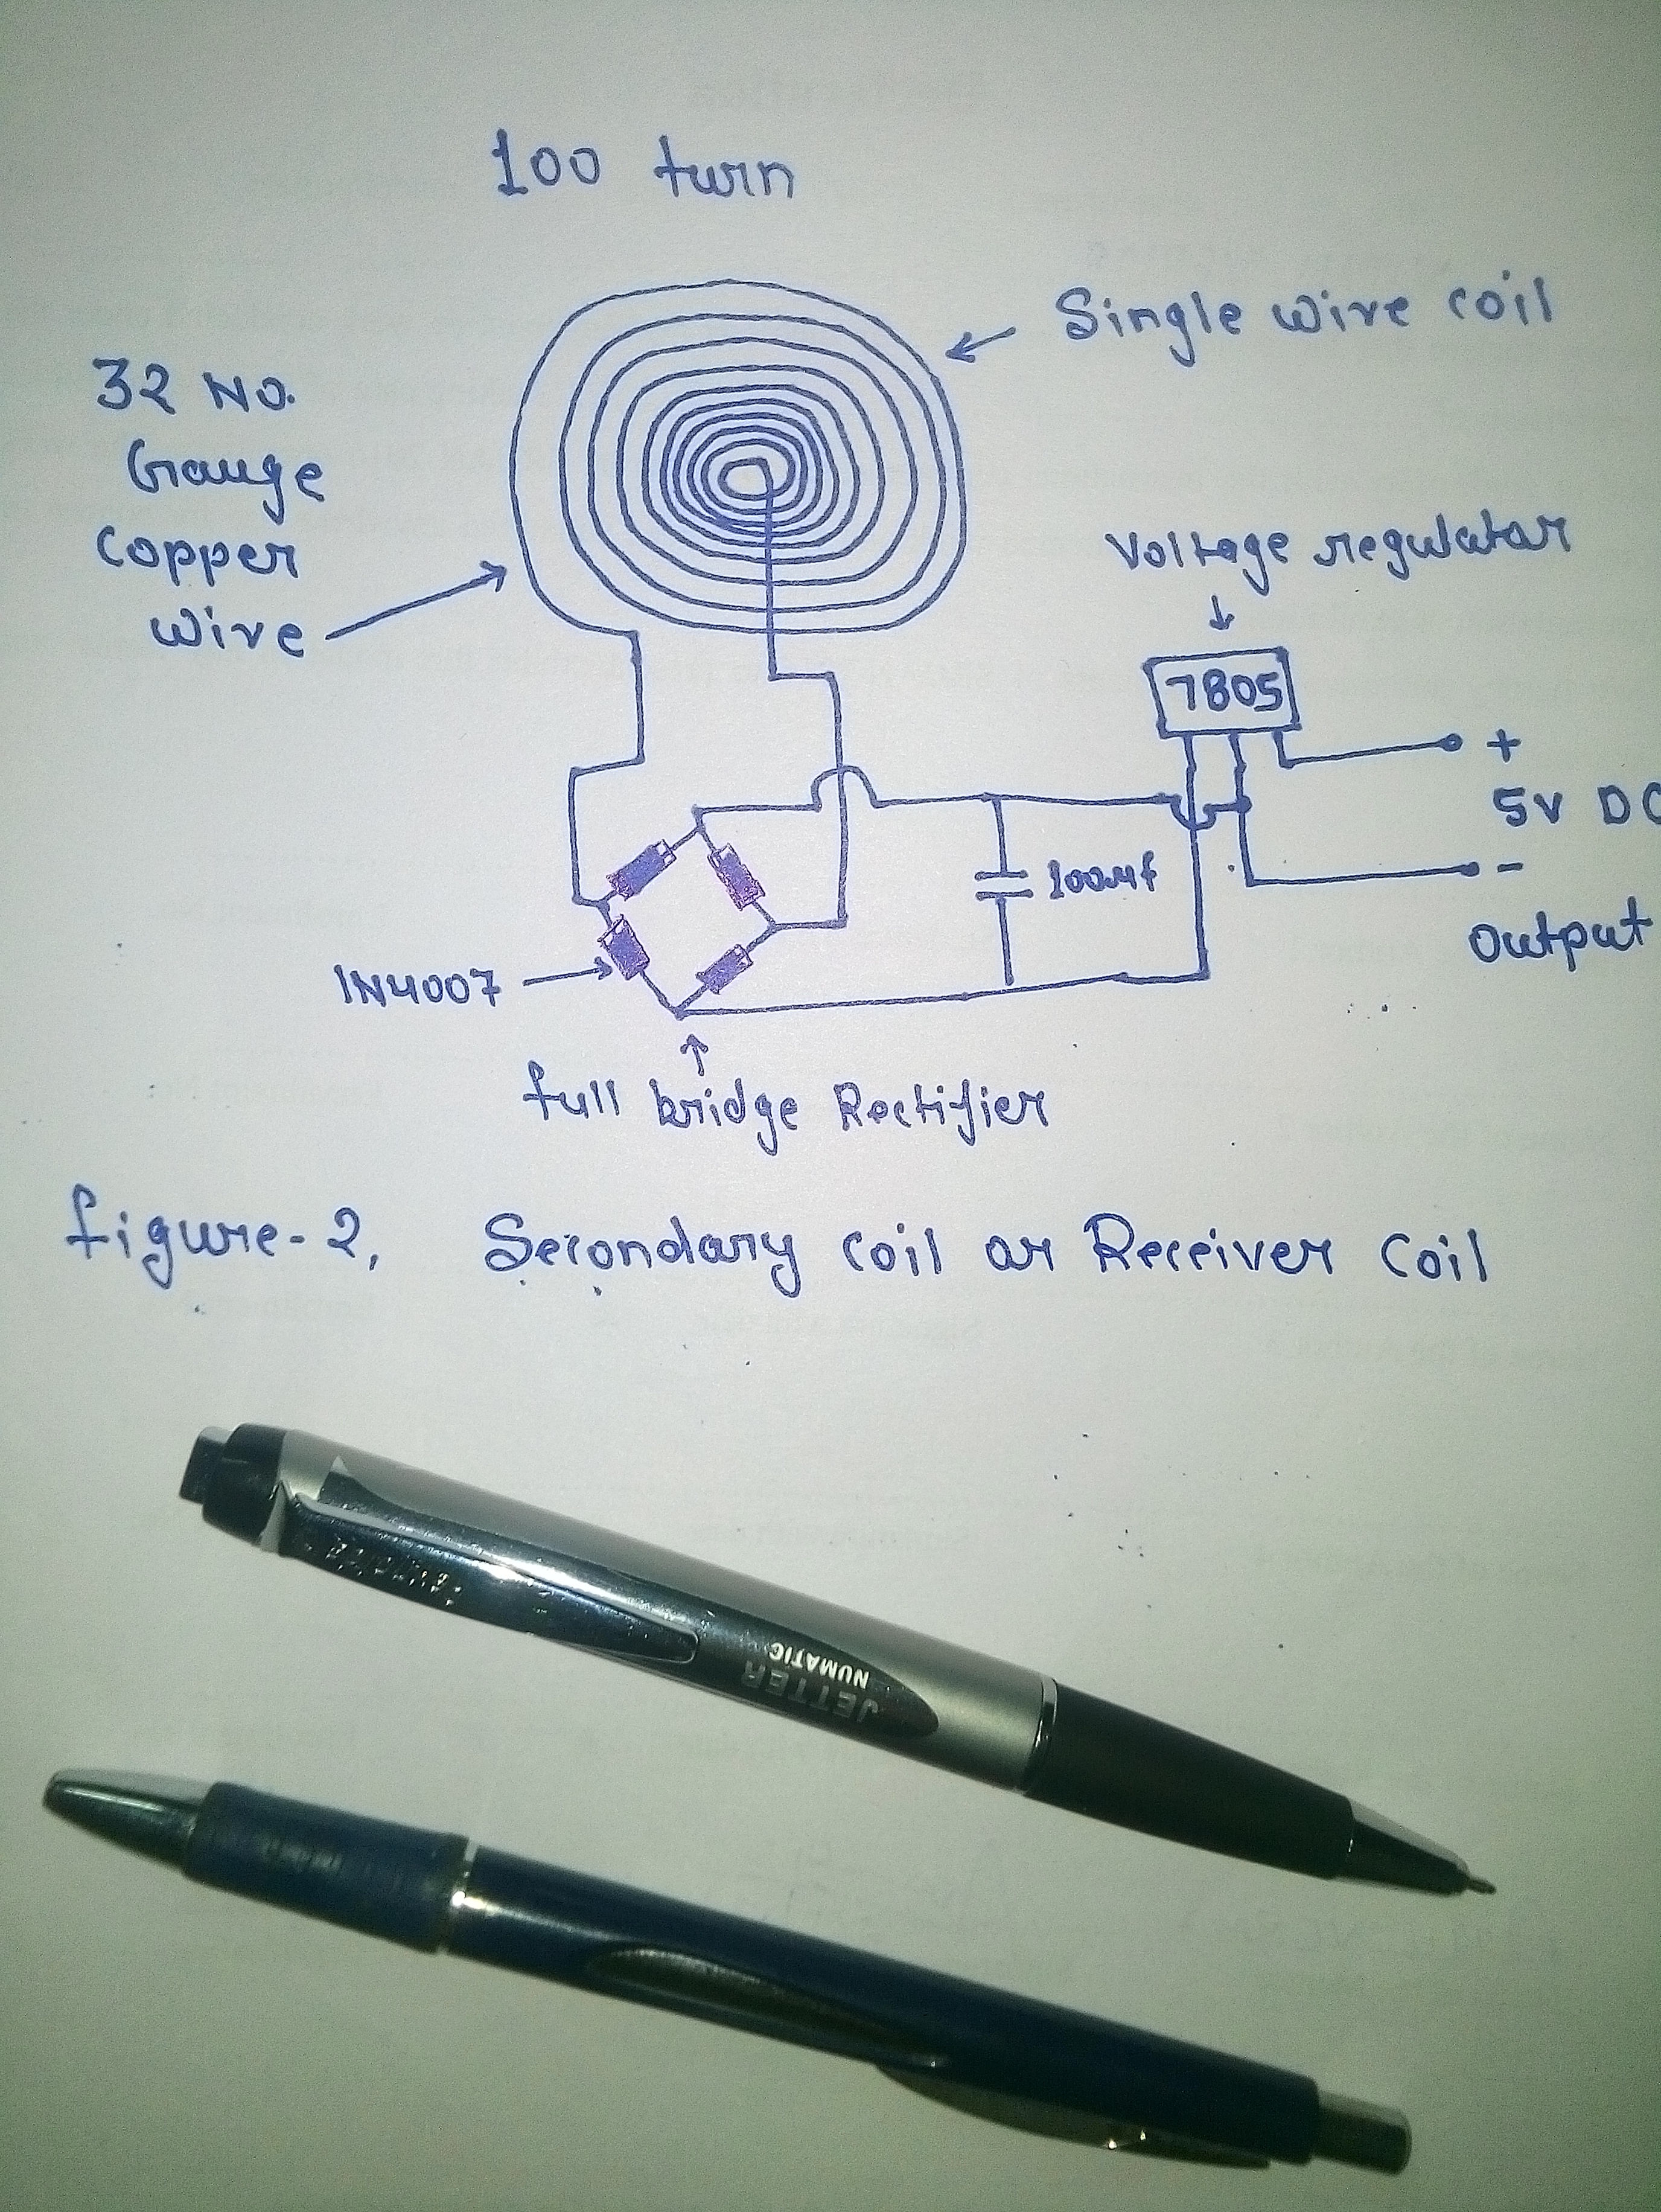 100 turn
Single wire coil
32 No.
Gauge
copper
wire
Voltage regulator
7805
+
5V DC
-
100μf
Output
1N4007
full bridge Rectifier
figure-2, Secondary coil or Receiver coil
JETTER
NUMATIC